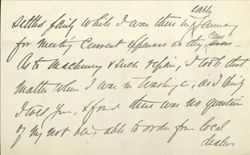 settled fairly while I was there in early January
for meeting Current expenses as they
As to machinery & such repair, I took that
matter when I was in Washington, as I think
I told you, & found there was no question
of my not being able to order from local
dealers